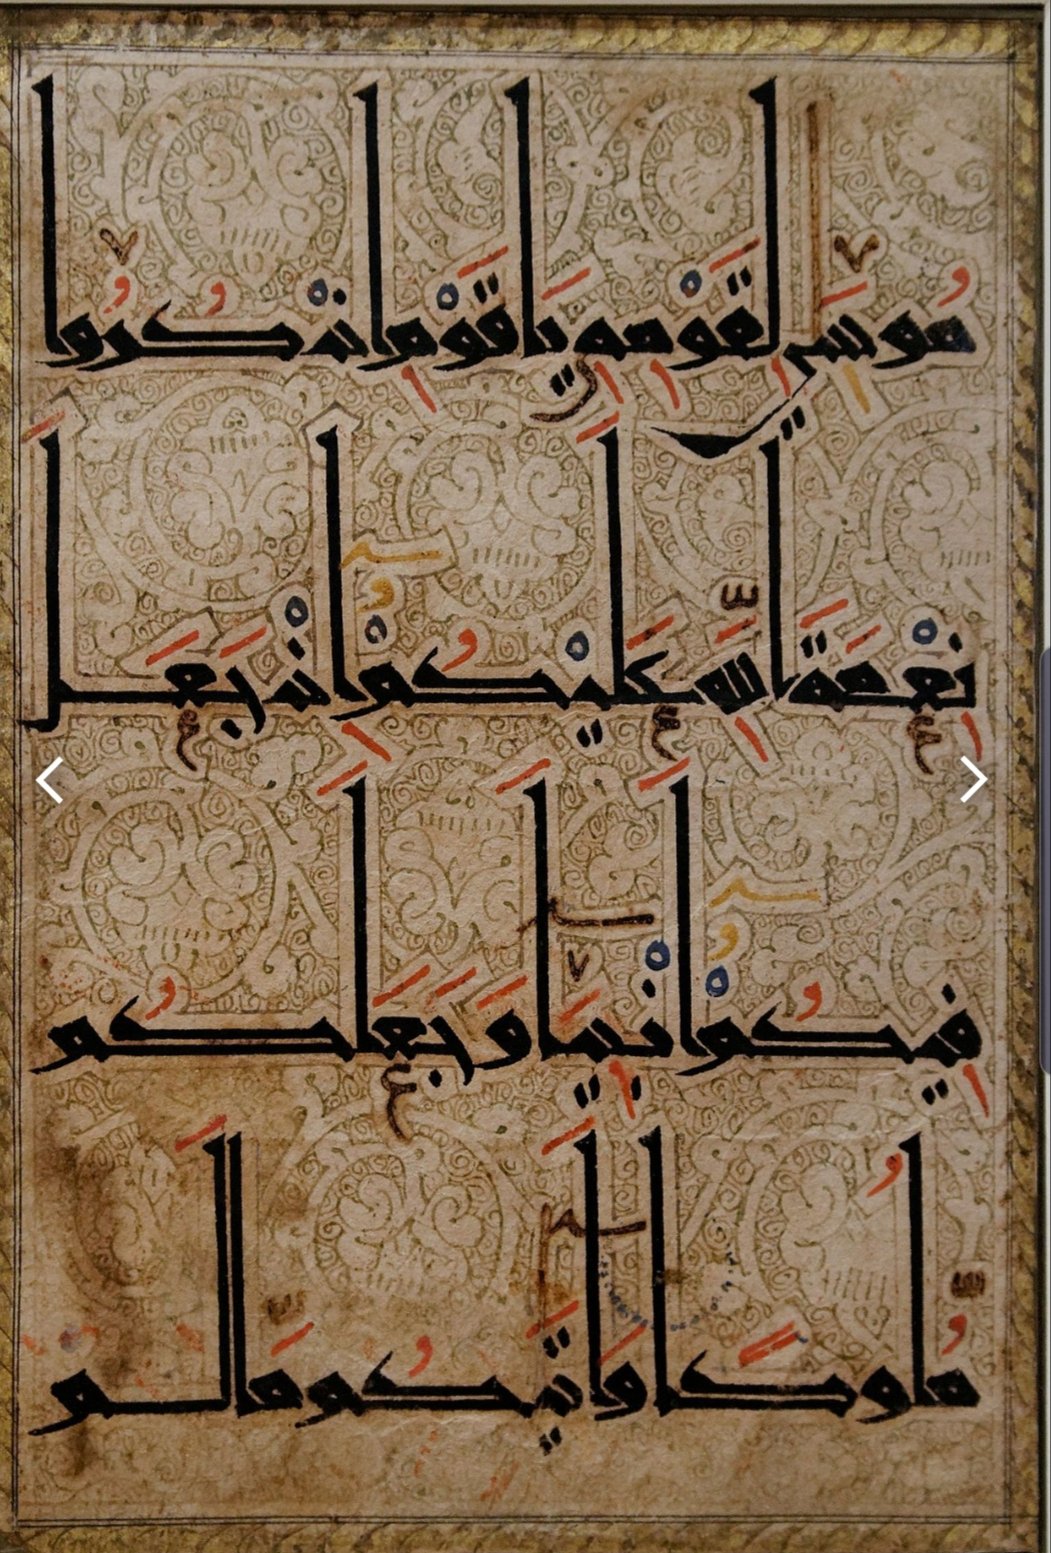 مُوسَىٰ لِقَوْمِهِ يَا قَوْمِ اذْكُرُوا
نِعْمَةَ اللَّهِ عَلَيْكُمْ إِذْ جَعَلَ
فِيكُمْ أَنْبِيَاءَ وَجَعَلَكُمْ
مُلُوكًا وَآتَيٰكُمْ مَا لَمْ